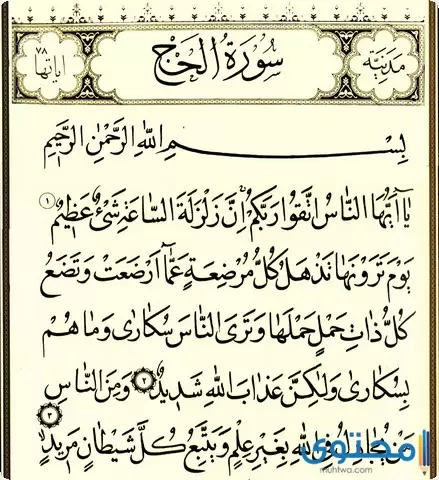 مَدَنِيَّة سُورَةُ الْحَجِّ اٰيَاتُهَا ٧٨
بِسْمِ اللهِ الرَّحْمٰنِ الرَّحِيمِ
يَا أَيُّهَا النَّاسُ اتَّقُوا رَبَّكُمْ إِنَّ زَلْزَلَةَ السَّاعَةِ شَيْءٌ عَظِيمٌ ١
يَوْمَ تَرَوْنَهَا تَذْهَلُ كُلُّ مُرْضِعَةٍ عَمَّا أَرْضَعَتْ وَتَضَعُ
كُلُّ ذَاتِ حَمْلٍ حَمْلَهَا وَتَرَى النَّاسَ سُكَارٰى وَمَا هُمْ
بِسُكَارٰى وَلٰكِنَّ عَذَابَ اللهِ شَدِيدٌ ٢ وَمِنَ النَّاسِ
مَنْ يُجَادِلُ فِي اللهِ بِغَيْرِ عِلْمٍ وَيَتَّبِعُ كُلَّ شَيْطَانٍ مَرِيدٍ ٣
محتوى
muhtwa.com